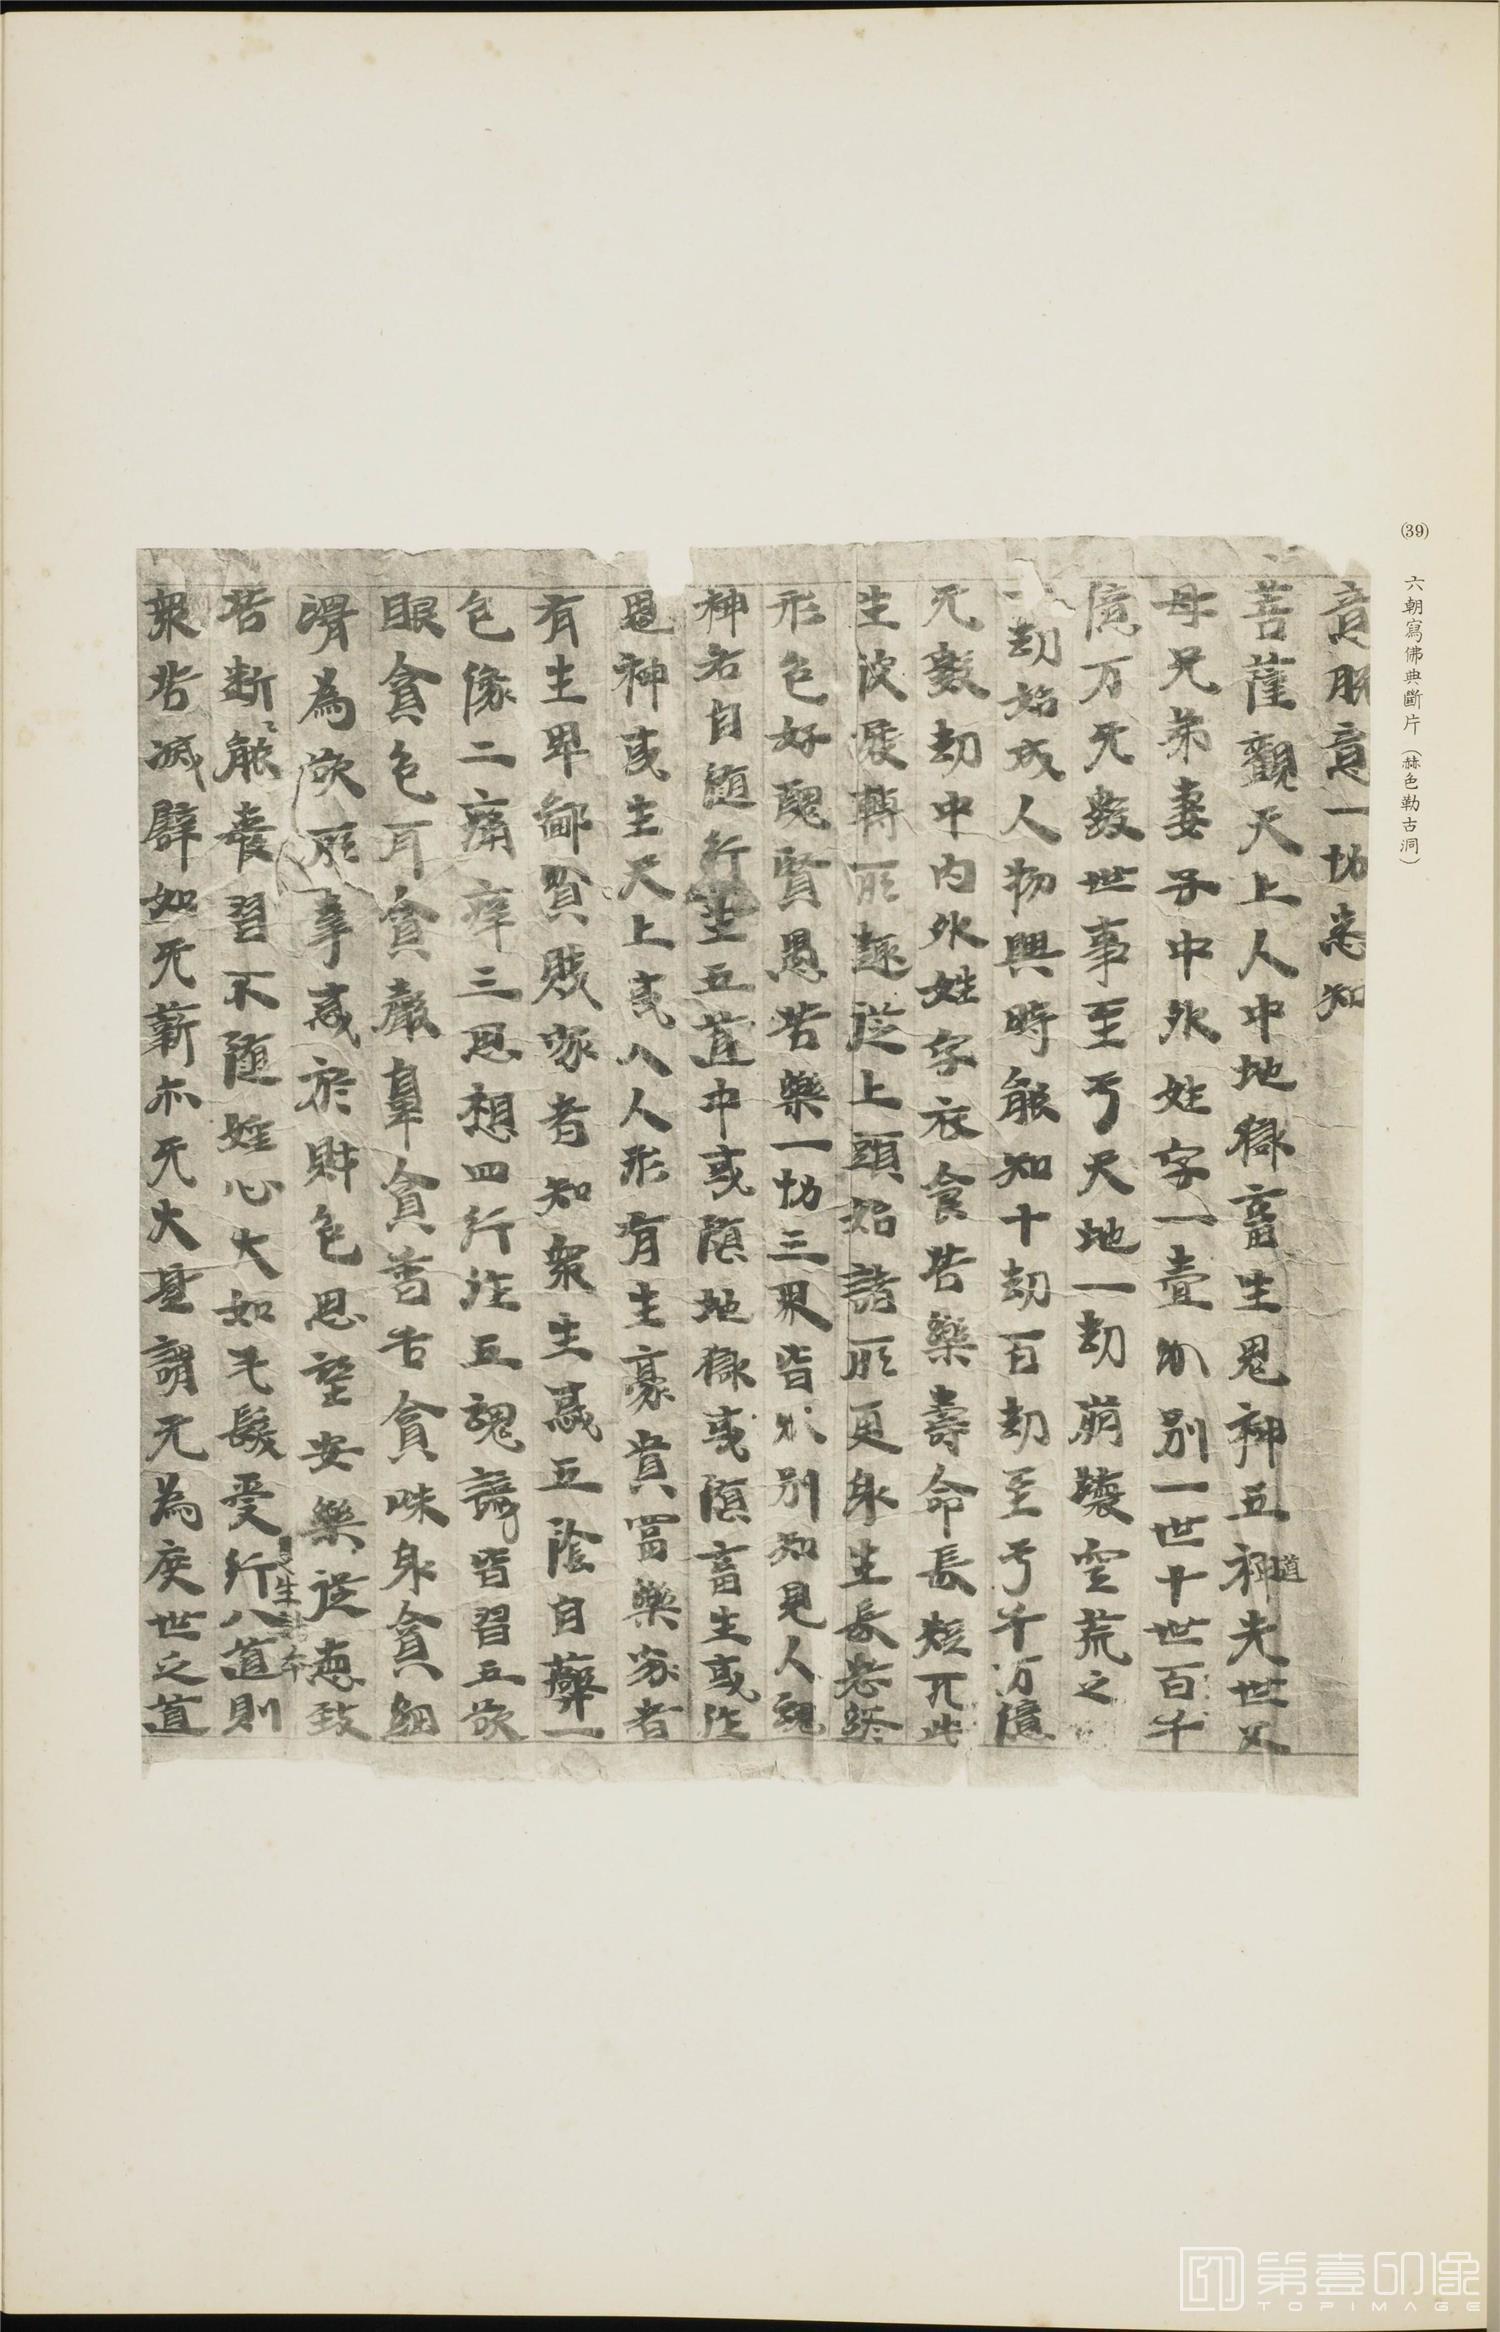 (39) 六朝寫佛典斷片（赫色勒古洞）
意脱意一切悉知
菩薩觀天上人中地獄畜生鬼神五神道夫世父
母兄弟妻子中外姓字一壹分別一世十世百千
億万无數世事至于天地一劫崩壞空荒之
一劫始成人物興時能知十劫百劫至于千万億
无數劫中内外姓字衣食苦樂壽命長短死此
生彼展轉所趣從上頭始諸所更身生長老終
形色好醜賢愚苦樂一切三界皆分別知見人魂
神各自隨行生五道中或隨地獄或隨畜生或作
鬼神或生天上或入人形有生豪貴富樂家者
有生卑鄙貧賤家者知衆生或五陰自蔽一
色像二痛痒三思想四行作五魂識皆習五欲
眼貪色耳貪聲鼻貪香舌貪味身貪細
滑為欲所牽或於財色思望安樂從德致
苦斷能棄習不隨婬心大如毛髮受行八道則
衆苦滅譬如无薪亦无大是謂无為度世之道
第壹印像
TOPIMAGE